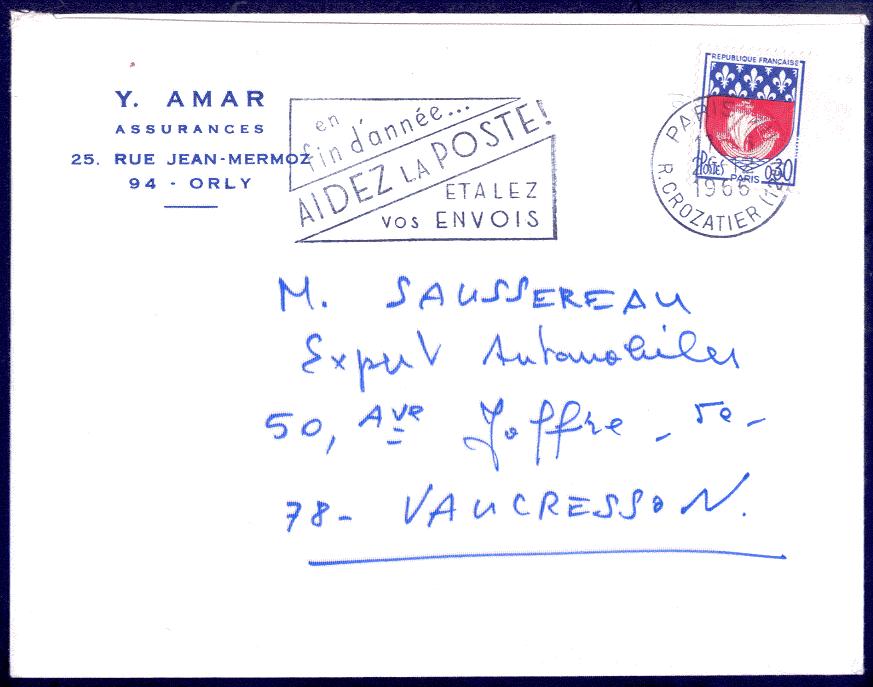 Y. AMAR
ASSURANCES
25. RUE JEAN-MERMOZ
94 - ORLY
en
fin d'année...
AIDEZ LA POSTE!
ETALEZ
VOS ENVOIS
REPUBLIQUE FRANÇAISE
POSTES
0,30
PARIS
PARIS
1966
R. CROZATIER
M. SAUSSEREAU
Expert Automobiles
50, Ave Joffre -
78- VAUCRESSON.